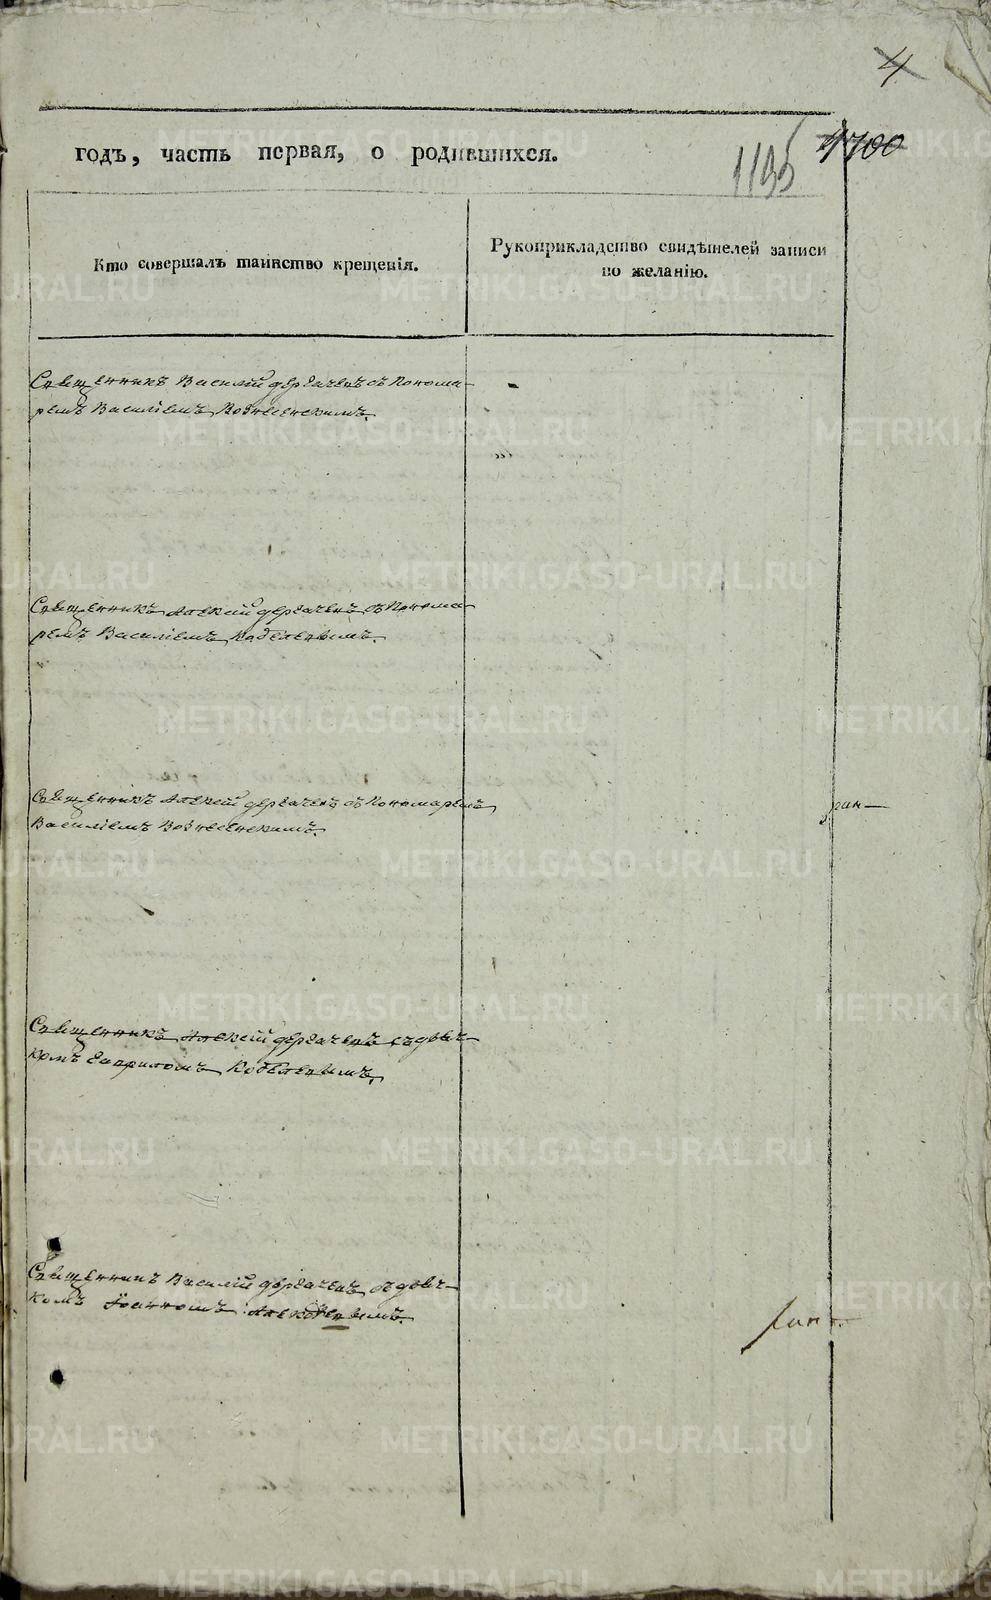 4
годъ, часть первая, о родившихся.
1195
1700
Кто совершалъ таинство крещенія.
Рукоприкладство свидѣтелей записи
по желанію.
Священникъ Василій Дергачевъ съ Понома-
ремъ Василіемъ Вознесенскимъ.
Священникъ Алексій Дергачевъ съ Понома-
ремъ Василіемъ
Священникъ Алексій Дергачевъ съ Пономаремъ
Василіемъ Вознесенскимъ.
Священникъ Алексій Дергачевъ съ дьяч-
комъ Гавриломъ
Священникъ Василій Дергачевъ съ дьяч-
комъ Іоанномъ
METRIKI.GASO-URAL.RU